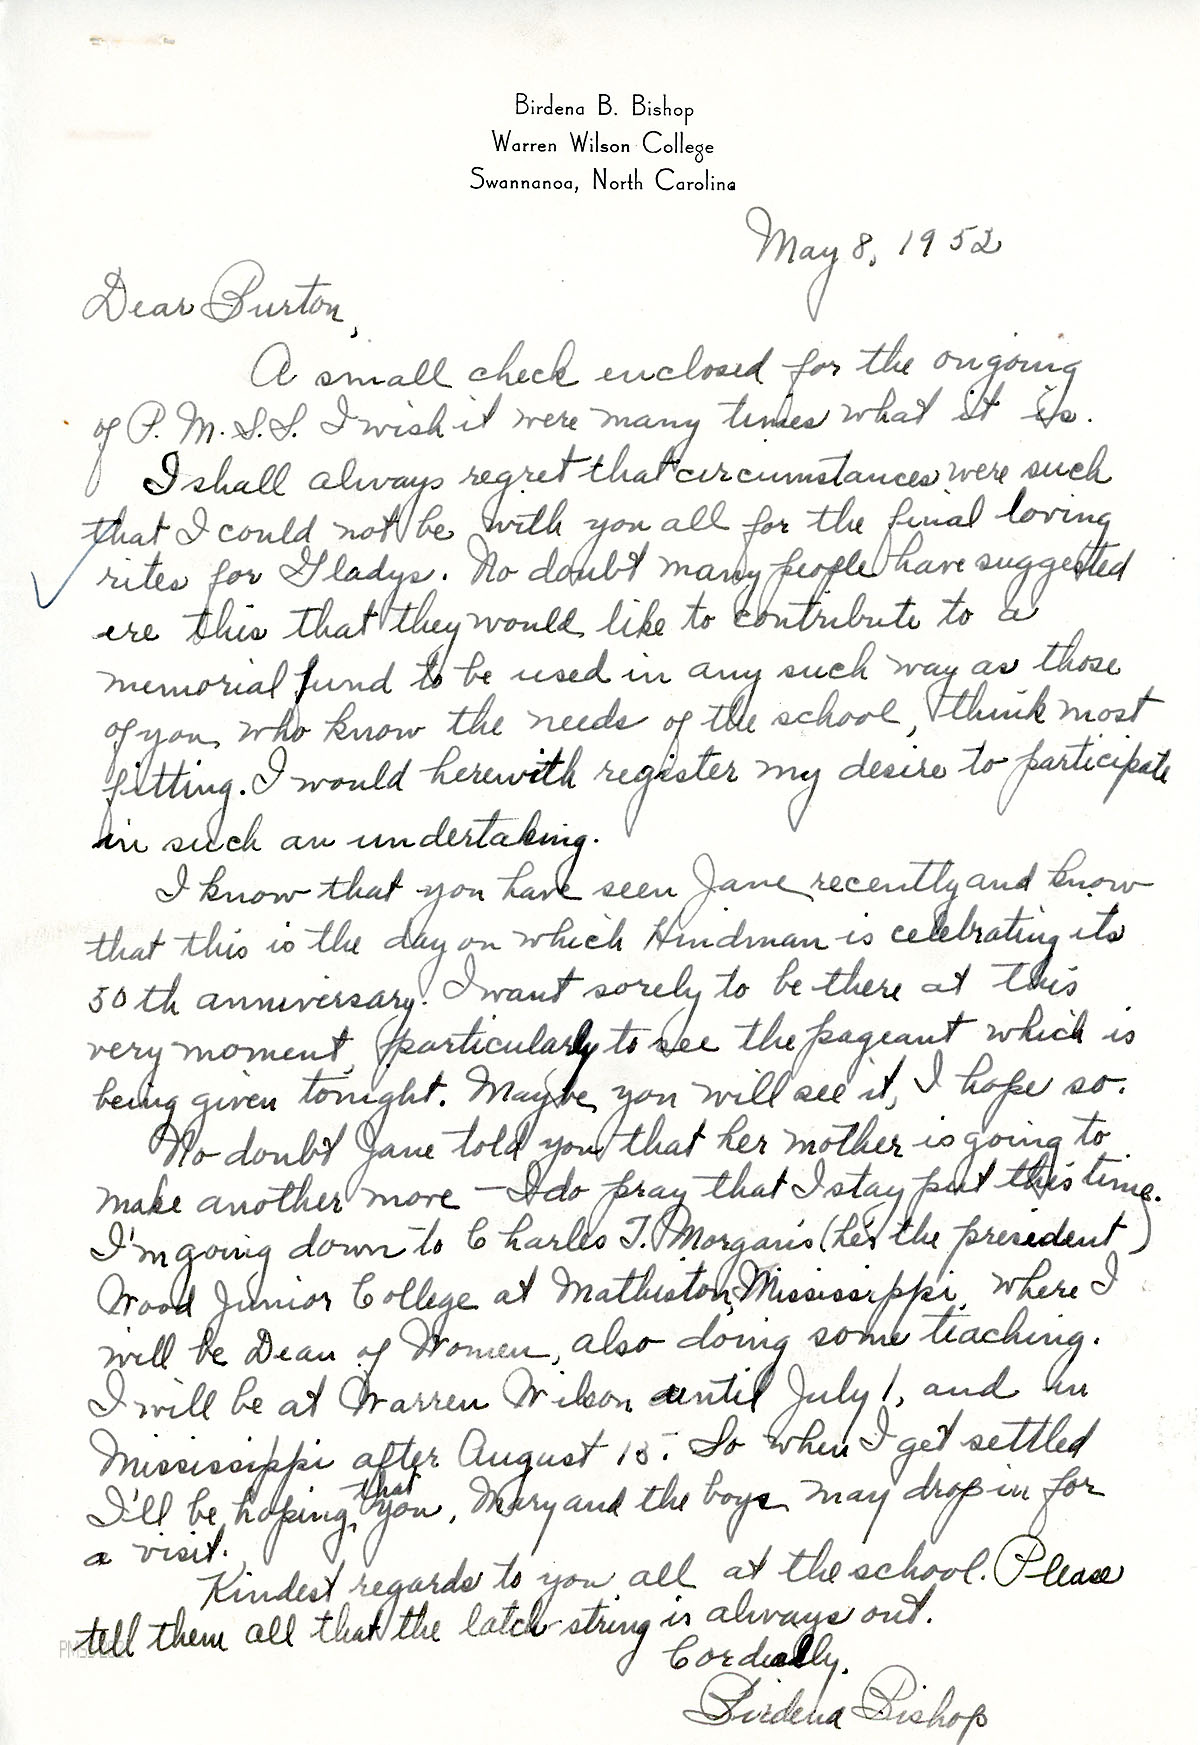 Birdena B. Bishop
Warren Wilson College
Swannanoa, North Carolina
May 8, 1952
Dear Burton,
A small check enclosed for the ongoing
of P. M. S. S. I wish it were many times what it is.
I shall always regret that circumstances were such
that I could not be with you all for the final loving
rites for Gladys. No doubt many people have suggested
ere this that they would like to contribute to a
memorial fund to be used in any such way as those
of you, who know the needs of the school, think most
fitting. I would herewith register my desire to participate
in such an undertaking.
I know that you have seen Jane recently and know
that this is the day on which Hindman is celebrating its
50th anniversary. I want sorely to be there at this
very moment, particularly to see the pageant which is
being given tonight. Maybe you will see it, I hope so.
No doubt Jane told you that her mother is going to
make another move — I do pray that I stay put this time.
I'm going down to Charles T. Morgan's (he's the president)
Wood Junior College at Mathiston, Mississippi, where I
will be Dean of Women, also doing some teaching.
I will be at Warren Wilson until July 1, and in
Mississippi after August 15. So when I get settled
I'll be hoping that you, Mary and the boys may drop in for
a visit.
Kindest regards to you all at the school. Please
tell them all that the latch-string is always out.
Cordially,
Birdena Bishop